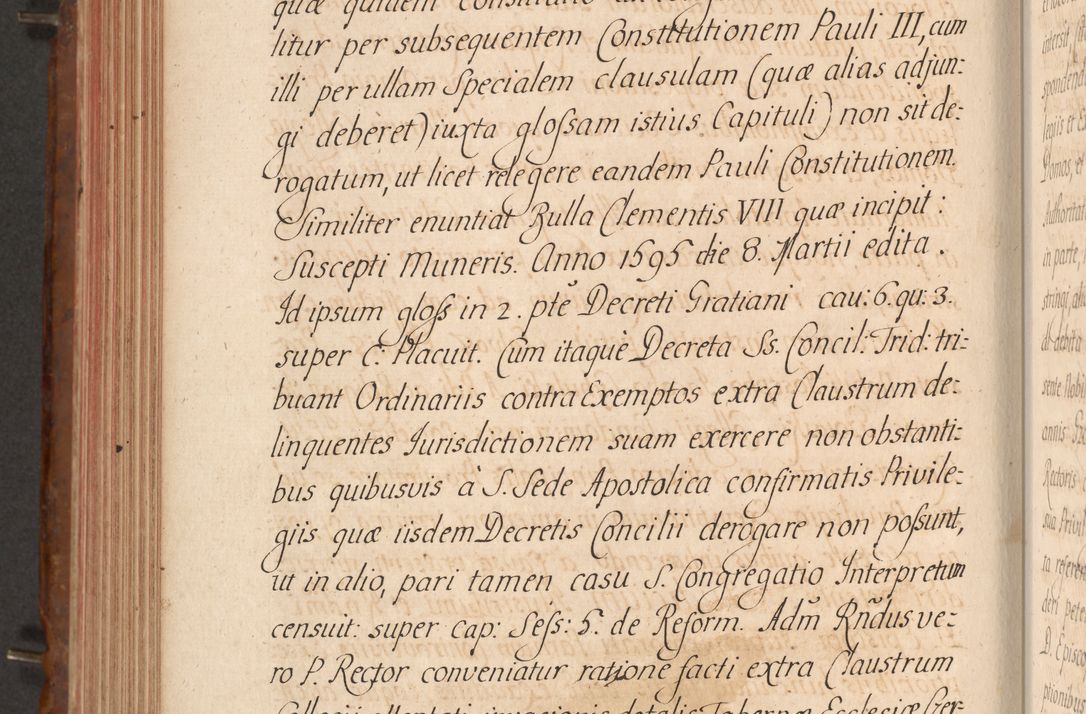 litur per subsequentem Constitutionem Pauli III, cum
illi per ullam Specialem clausulam (quæ alias adjun:
gi deberet) iuxta gloſsam istius Capituli) non sit de:
rogatum, ut licet relegere eandem Pauli Constitutionem.
Similiter enuntiat Bulla Clementis VIII quæ incipit:
Suscepti Muneris. Anno 1595 die 8. Martii edita.
Id ipsum gloſs in 2. ptẽ Decreti Gratiani cau: 6. qu: 3.
super C: Placuit. Cum itaquè Decreta Ss. Concil: Trid: tri:
buant Ordinariis contra Exemptos extra Claustrum de:
linquentes Jurisdictionem suam exercere non obstanti:
bus quibusvis à S. Sede Apostolica confirmatis Privile:
giis quæ iisdem Decretis Concilii derogare non poſsunt,
ut in alio, pari tamen casu S. Congregatio Interpretum
censuit: super Cap: Seſs: 5. de Reform. Adm̃ Rñdus ve:
ro P. Rector conveniatur ratione facti extra Claustrum